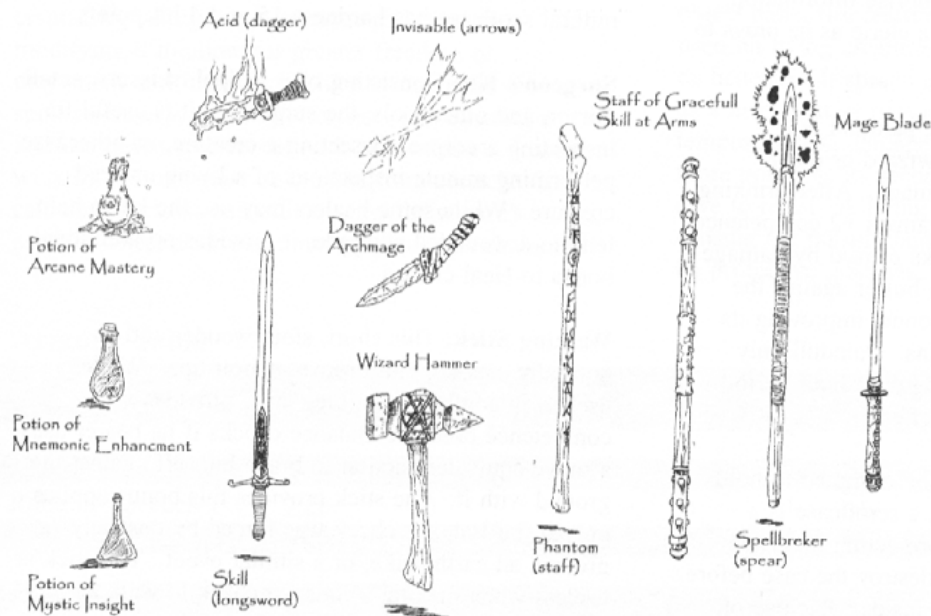 Acid (dagger)
Invisable (arrows)
Staff of Gracefull
Skill at Arms
Mage Blade
Potion of
Arcane Mastery
Dagger of the
Archmage
Wizard Hammer
Potion of
Mnemonic Enhancment
Potion of
Mystic Insight
Skill
(longsword)
Phantom
(staff)
Spellbreker
(spear)